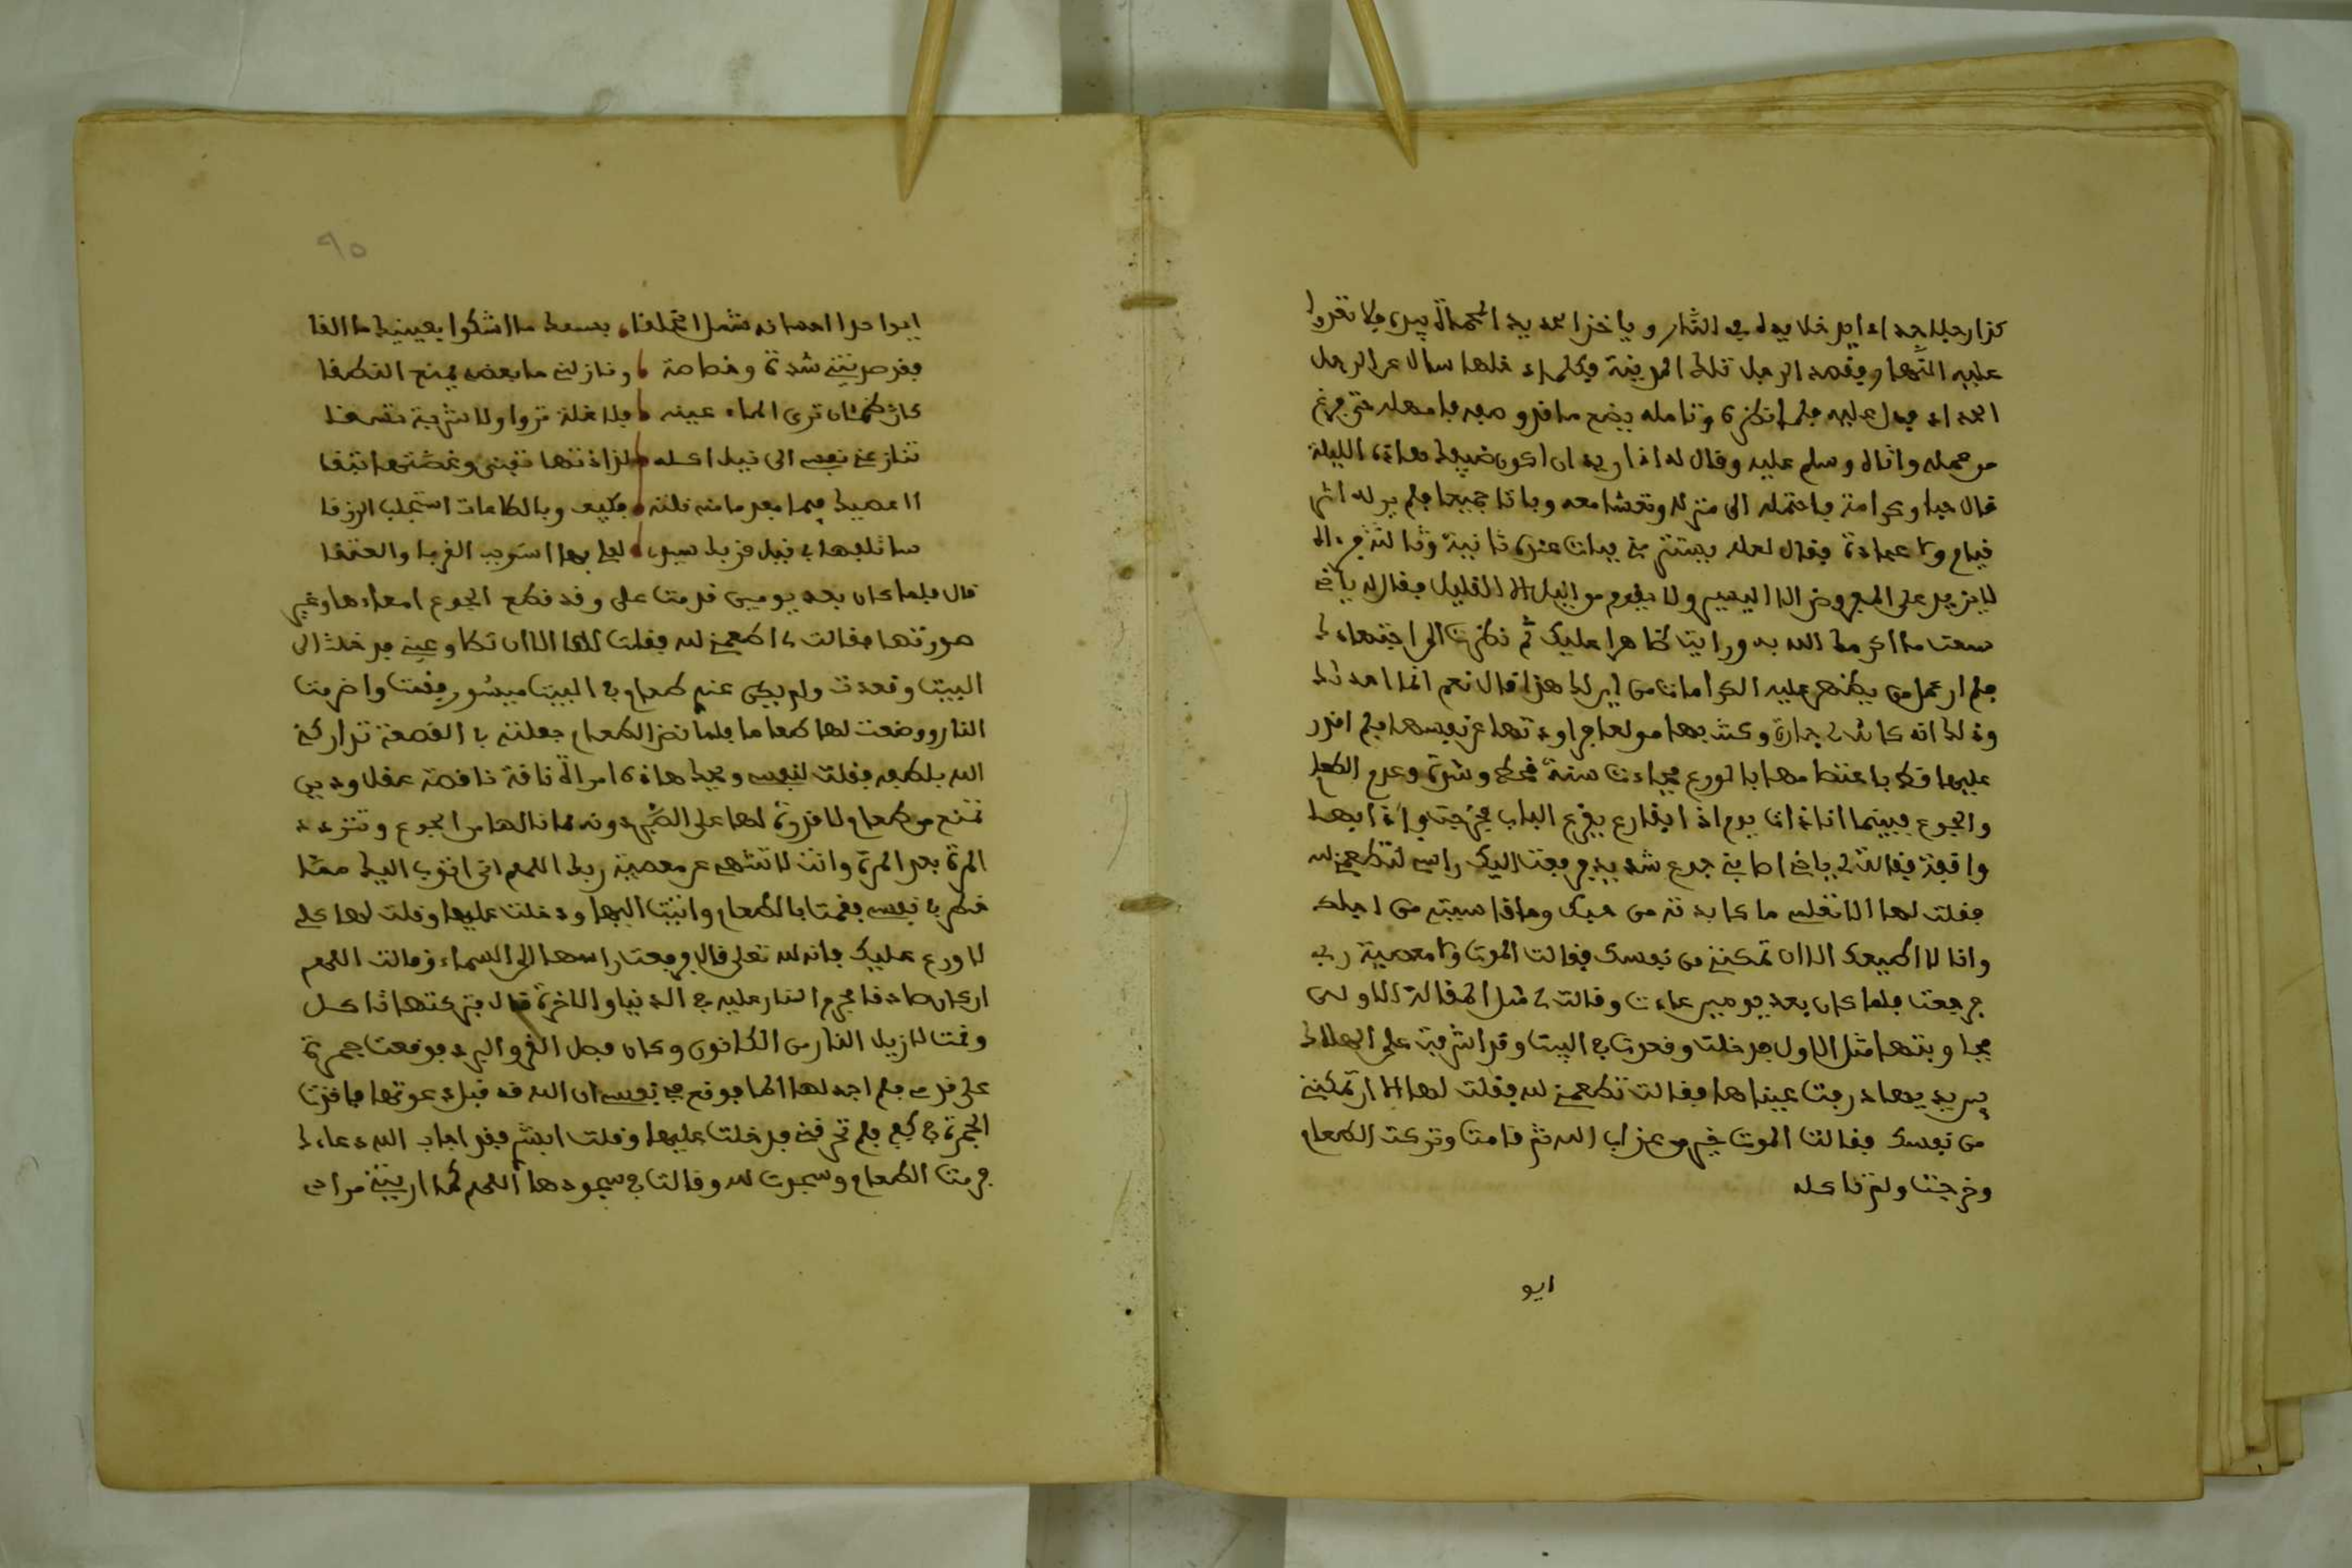 كذا رجلا حداد ايد خلا يده في النار وياخذ الحديد المحماة بيده فلا تعدوا
عليه النار فقصد الرجل تلك المدينة فلما دخلها سال عن الرجل
الحداد فدل عليه فلما نظره وتامله يصنع ما قد وصف فامهله حتى فرغ
من عمله واتاه وسلم عليه وقال له انا اريد ان اكون ضيفك هاذه الليلة
قال حبا وكرامة فاحتمله الى منزله وتعشا معه وباتا جميعا فلم ير له اثر
قيام ولا عبادة فقال لعله يستتر مني فبات عنده ثانية وثالثة فرءاه
لا يزيد على المفروض الا اليسير ولا يقوم من اليل الا القليل فقال له يا اخي
سمعت ما اكرمك الله به ورايت ظاهرا عليك ثم نظرت الى اجتهادك
فلم ار عمل من يظهر عليه الكرامات من اين لك هذا قال نعم انا احدثك
وذلك انه كانت لي جارة وكنت بها مولعا فراودتها عن نفسها فلم اقدر
عليها قط باعتصامها بالورع فجاءت سنة قحط وشدة وعدم الطعام
والجوع فبينما انا ذات يوم اذا بقارع يقرع الباب فخرجت واذا بها
واقفة فقالت لي يا اخي اصابني جوع شديد فرفعت اليك راسي لتطعمني لله
فقلت لها الا تعلمي ما كابدته من حبك وما قاسيته من اجلك
وانا لا اطعمك الا ان تمكنني من نفسك فقالت الموت ولا معصية ربي
فرجعت فلما كان بعد يومين عادت وقالت لي مثل المقالة الاولى
فجاوبتها مثل الاول فدخلت وقعدت في البيت وقد اشرفت على الهلاك
بين يديها ذرفت عيناها فقالت تطعمني لله فقلت لها الا ان تمكنني
من نفسك فقالت الموت خير من عذاب الله ثم قامت وتركت الطعام
وخرجت ولم تاكله
ايو
٩٥
ايا واحدا احسانه شمل الخلقا بسمعك ما اشكوا بعينيك ما القا
فقد صرتني شدة وخصاصة ونازلني ما بعضه يمنع النطقا
كاني ظمئان ترى الماء عينه فلا غلة تروا ولا شربة تسقا
تنازعني نفسي الى نيل اكله لذاذتها تفنى وغصتها تبقا
ااعصيك فيما بعد ما منه نلته فكيف وبالطاعات استجلب الرزقا
قال فلما كان بعد يومين قدمت علي وقد قطع الجوع امعاءها وغير
صورتها فقالت لي اطعمني لله فقلت لها الا ان تطاوعيني فدخلت الى
البيت وقعدت ولم يكن عندي طعام في البيت ميسور فقمت واضرمت
النار ووضعت لها طعاما فلما نضج الطعام جعلته في القصعة تداركني
الله بلطفه فقلت لنفسي ويحك هاذه امراة ناقة ناقصة عقل ودين
تمتنع من طعام لا قدرة لها على الصبر دونه لما نالها من الجوع وتتردد
المرة بعد المرة وانت لا تنتهي عن معصية ربك اللهم اني اتوب اليك مما
خطر في نفسي فقمت بالطعام واتيت اليها ودخلت عليها وقلت لها كلي
لا ورع عليك فانه لله تعلى قال فرفعت راسها الى السماء وقالت اللهم
ان كان صادقا فحرم النار عليه في الدنيا والاخرة قال فتركتها تاكل
وقمت لازيل النار من الكانون وكان فصل القر والبرد فوقعت جمرة
على قدمي فلم اجد لها الما فوقع في نفسي ان الله قد قبل دعوتها فاخذت
الجمرة في كفي فلم تحرقني فدخلت عليها وقلت ابشري فقد اجاب الله دعاءك
فرمت الطعام وسجدت لله وقالت في سجودها اللهم كما اريتني مرادي